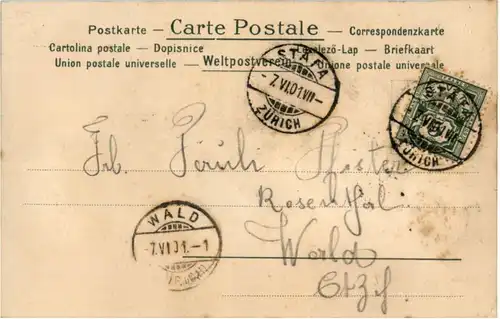 Postkarte — Carte Postale — Correspondenzkarte
Cartolina postale — Dopisnice — Levelező-Lap — Briefkaart
Union postale universelle — Weltpostverein — Unione postale universale
STÄFA
-7.VI.01.VII-
ZÜRICH
STÄFA
ZÜRICH
Pfister
Rosenthal
Wald
WALD
-7.VI.01.-1